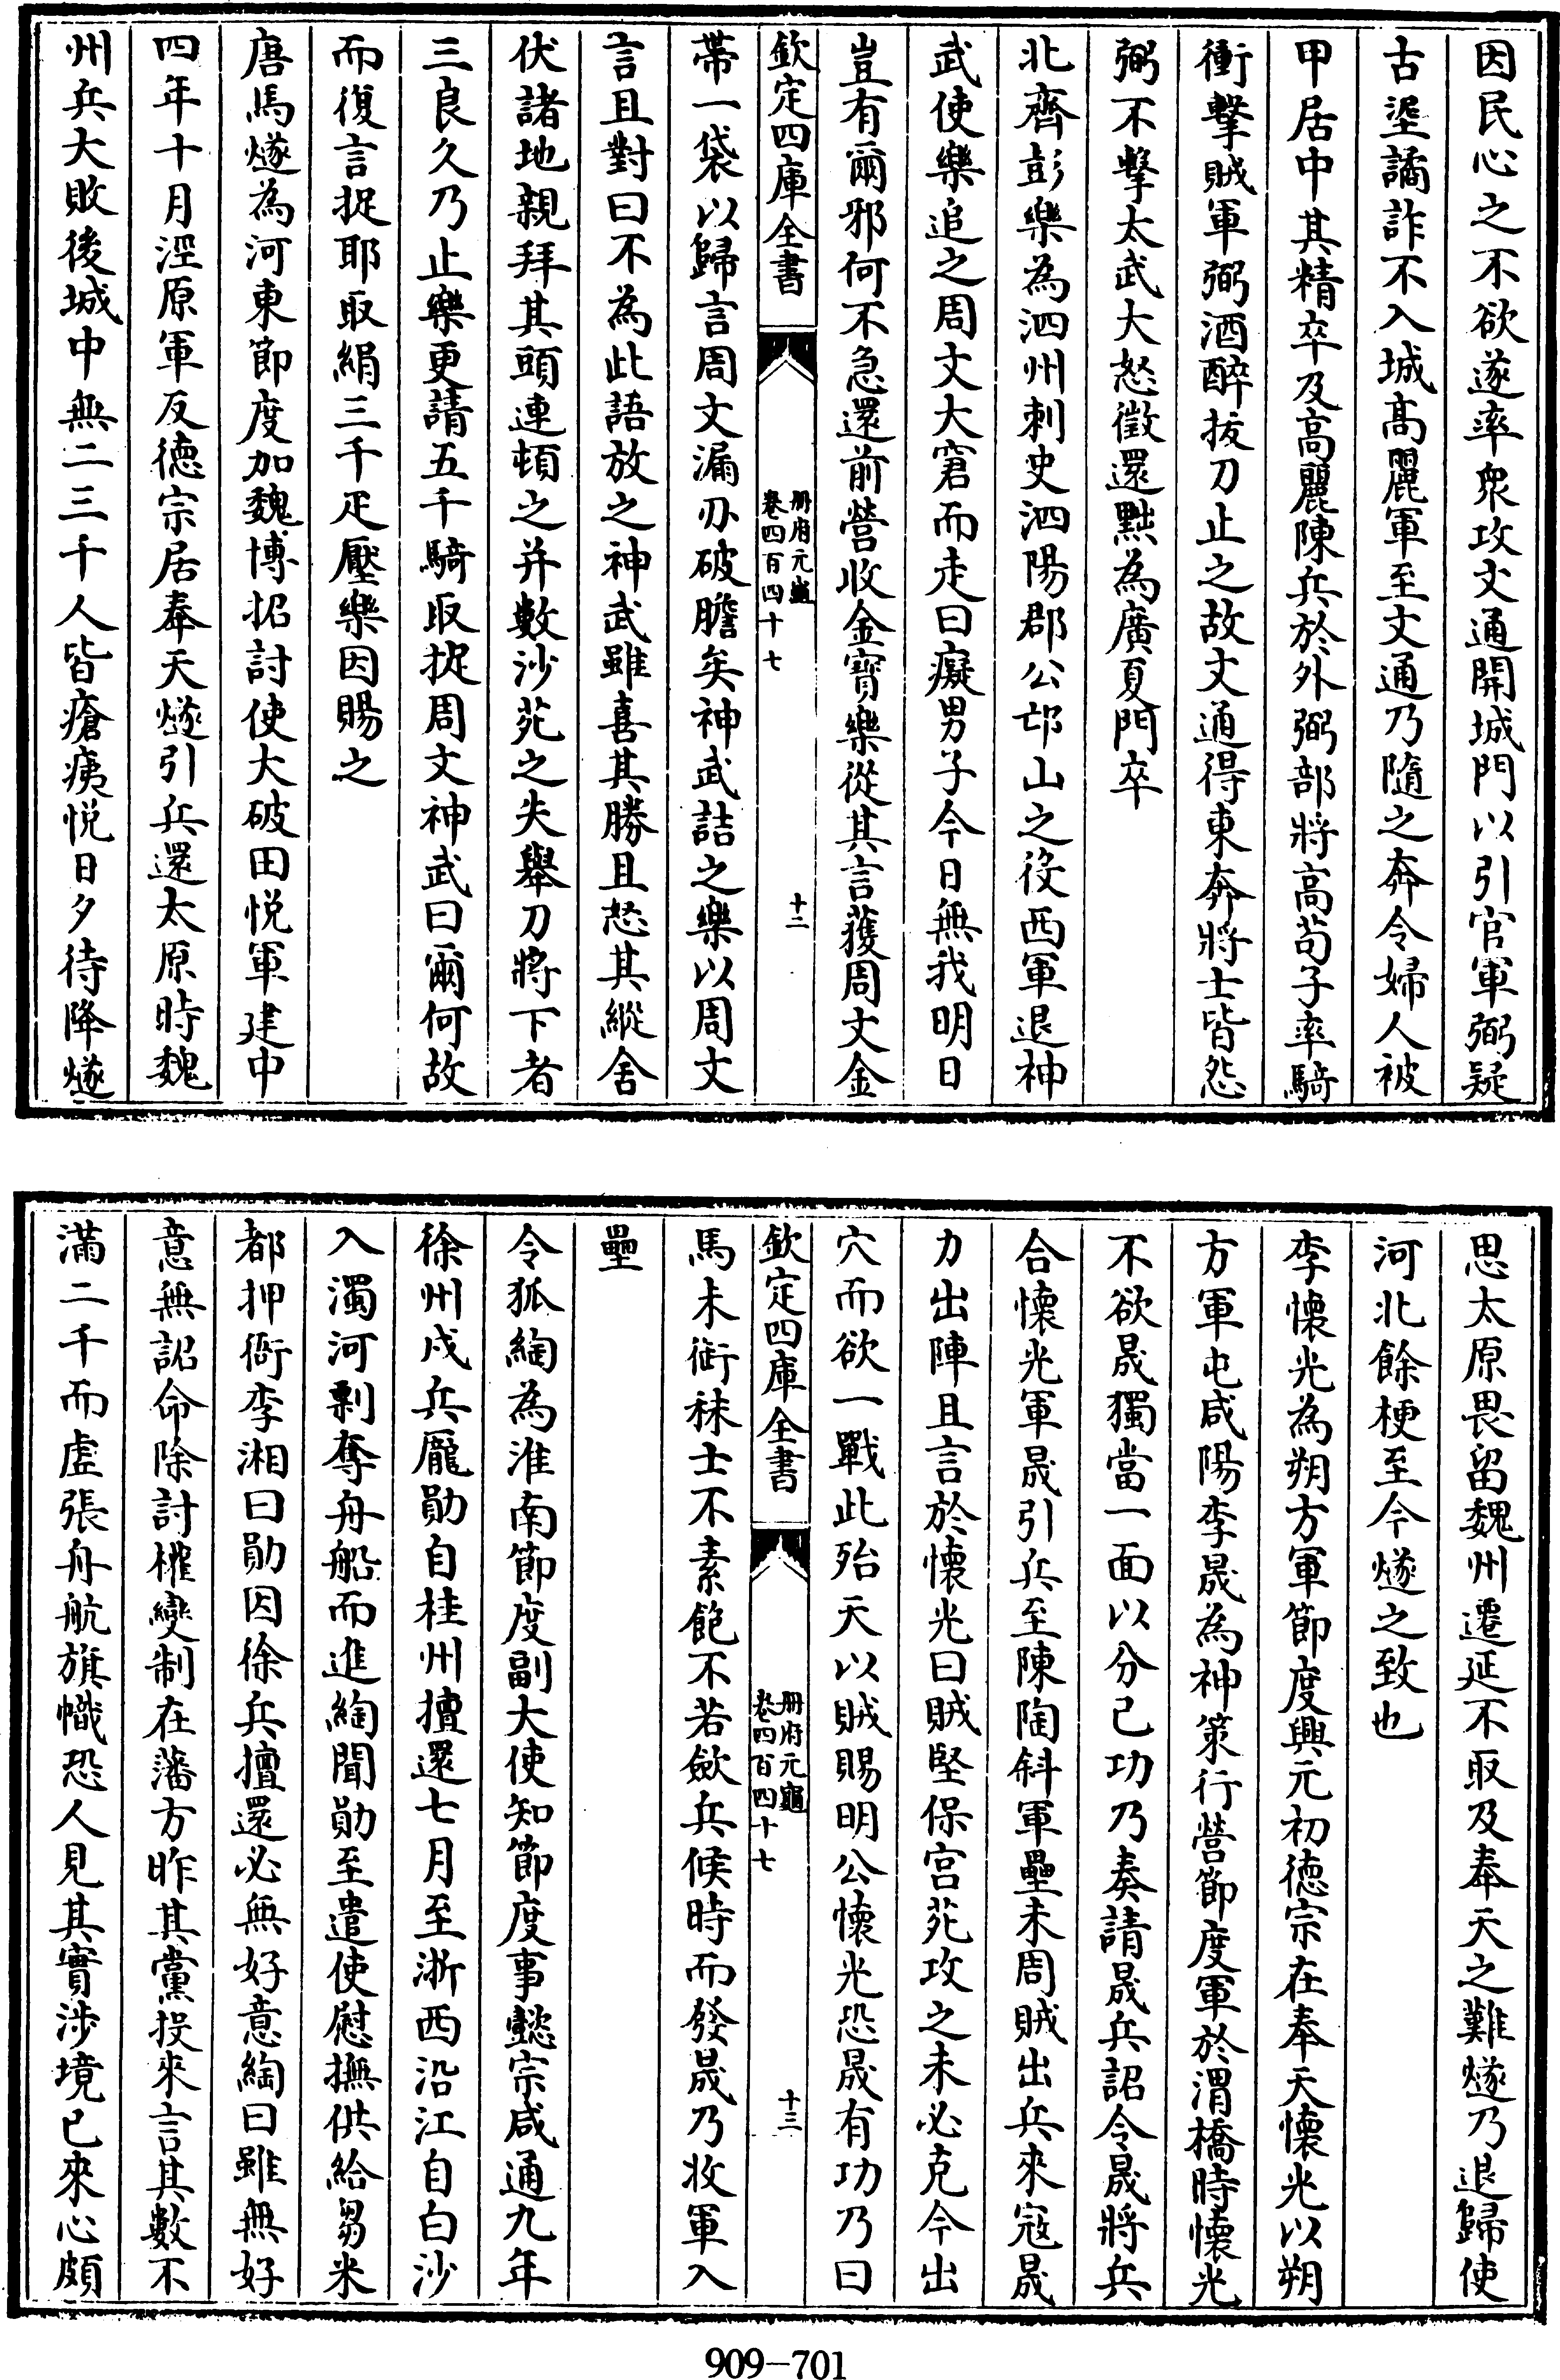 因民心之不欲遂率衆攻文通開城門以引官軍弼疑
古埿譎詐不入城髙麗軍至文通乃隨之奔令婦人被
甲居中其精卒及高麗陳兵於外弼部將高苟子率騎
衝擊賊軍弼酒醉拔刀止之故文通得東奔將士皆怨
弼不擊太武大怒徵還黜為廣夏門卒
北齊彭樂為泗州刺史泗陽郡公邙山之役西軍退神
武使樂追之周文大窘而走曰癡男子今日無我明日
豈有爾邪何不急還前營收金寳樂從其言獲周文金
欽定四庫全書
冊府元龜
卷四百四十七
十二
帶一袋以歸言周文漏刃破膽矣神武詰之樂以周文
言且對曰不為此語放之神武雖喜其勝且怒其縱舍
伏諸地親拜其頭連頓之并數沙苑之失舉刀將下者
三良久乃止樂更請五千騎取捉周文神武曰爾何故
而復言捉耶取絹三千疋壓樂因賜之
唐馬燧為河東節度加魏博招討使大破田悅軍建中
四年十月涇原軍反德宗居奉天燧引兵還太原時魏
州兵大敗後城中無二三千人皆瘡痍悅日夕待降燧
思太原畏留魏州遷延不取及奉天之難燧乃退歸使
河北餘梗至今燧之致也
李懷光為朔方軍節度興元初德宗在奉天懷光以朔
方軍屯咸陽李晟為神策行營節度軍於渭橋時懷光
不欲晟獨當一面以分己功乃奏請晟兵詔令晟將兵
合懷光軍晟引兵至陳陶斜軍壘未周賊出兵來寇晟
力出陣且言於懷光曰賊堅保宫苑攻之未必克今出
穴而欲一戰此殆天以賊賜明公懷光恐晟有功乃曰
欽定四庫全書
冊府元龜
卷四百四十七
十三
馬未銜秣士不素飽不若歛兵候時而發晟乃收軍入
壘
令狐綯為淮南節度副大使知節度事懿宗咸通九年
徐州戍兵龐勛自桂州擅還七月至浙西沿江自白沙
入濁河剽奪舟船而進綯聞勛至遣使慰撫供給芻米
都押衙李湘曰勛因徐兵擅還必無好意綯曰雖無好
意無詔命除討權變制在藩方昨其黨投來言其數不
滿二千而虛張舟航旗幟恐人見其實涉境已來心頗
909-701